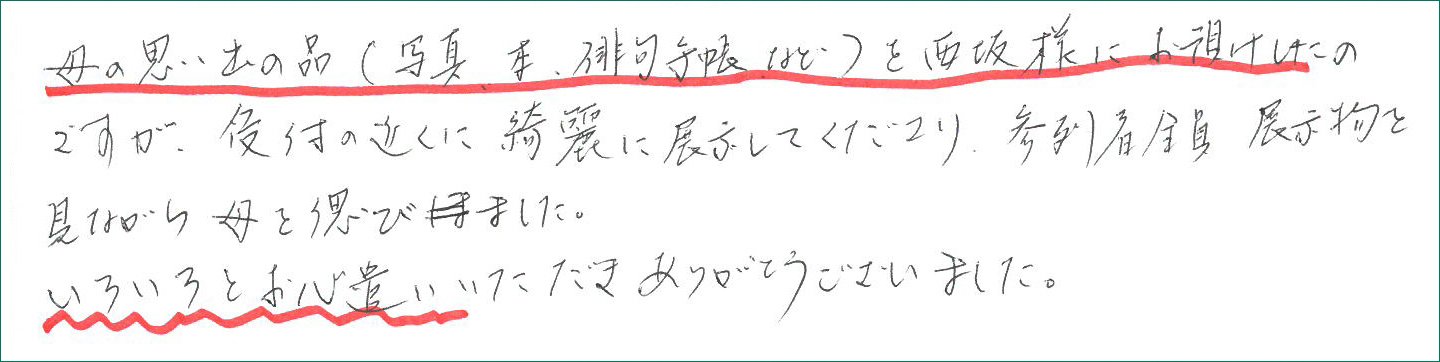 母の思い出の品(写真、本、俳句手帳など)を西坂様にお預けしたの
ですが、受付の近くに綺麗に展示してくださり、参列者全員 展示物を
見ながら母を偲びました。
いろいろとお心遣いいただきありがとうございました。